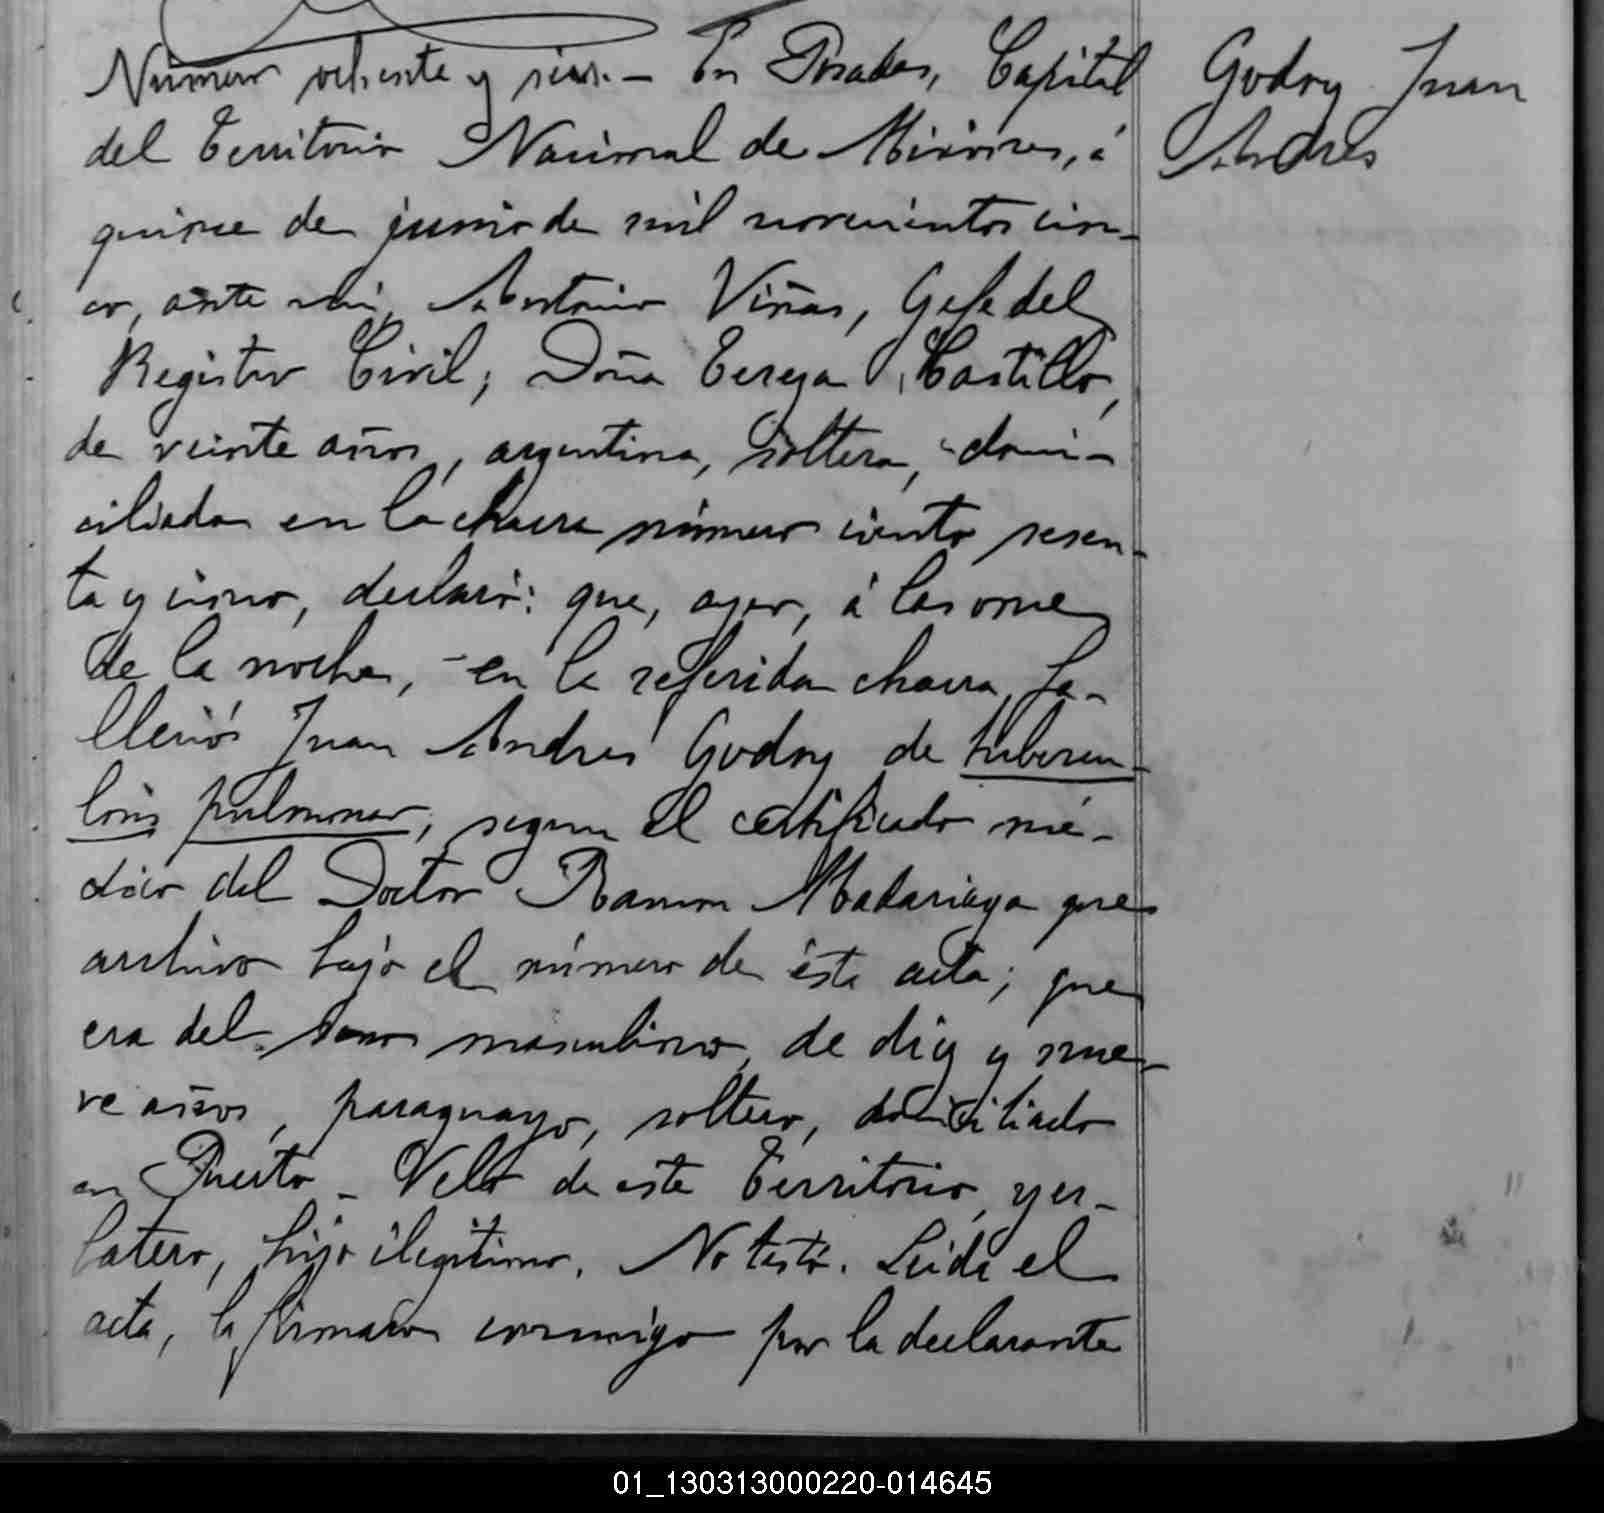 Número ochenta y seis.- En Posadas, Capital
del Territorio Nacional de Misiones, á
quince de junio de mil novecientos cin-
co, ante mi, Antonio Viñas, Gefe del
Registro Civil; Doña Tereza Castillo,
de veinte años, argentina, soltera, domi-
ciliada en la chacra número ciento sesen-
ta y cinco, declaró: que, ayer, á las once
de la noche, en la referida chacra, fa-
lleció Juan Andrés Godoy de tubercu-
losis pulmonar, segun el certificado mé-
dico del Doctor Ramon Madariaga que
archivo bajo el número de ésta acta; que
era del sexo masculino, de diez y nue-
ve años, paraguayo, soltero, domiciliado
en Puerto-Velo de este Territorio, yer-
batero, hijo ilegítimo. No testó. Leida el
acta, la firmaron conmigo por la declarante
Godoy Juan
Andrés
01_130313000220-014645